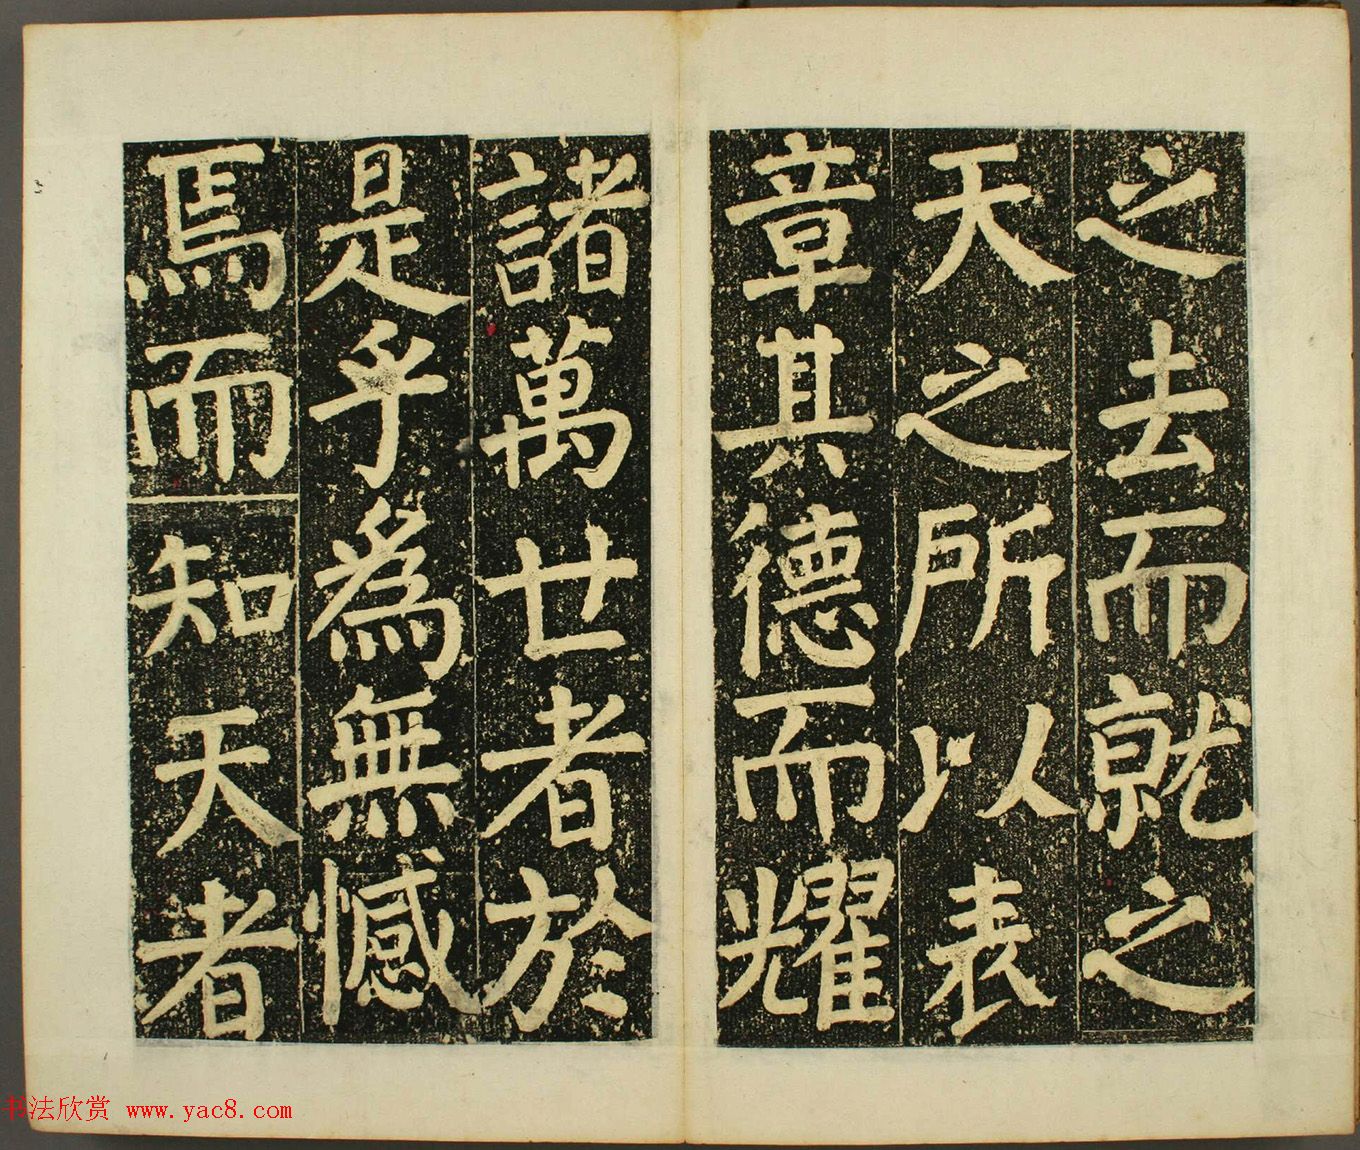 之去而就之
天之所以表
章其德而耀
諸萬世者於
是乎為無憾
焉而知天者
书法欣赏 www.yac8.com